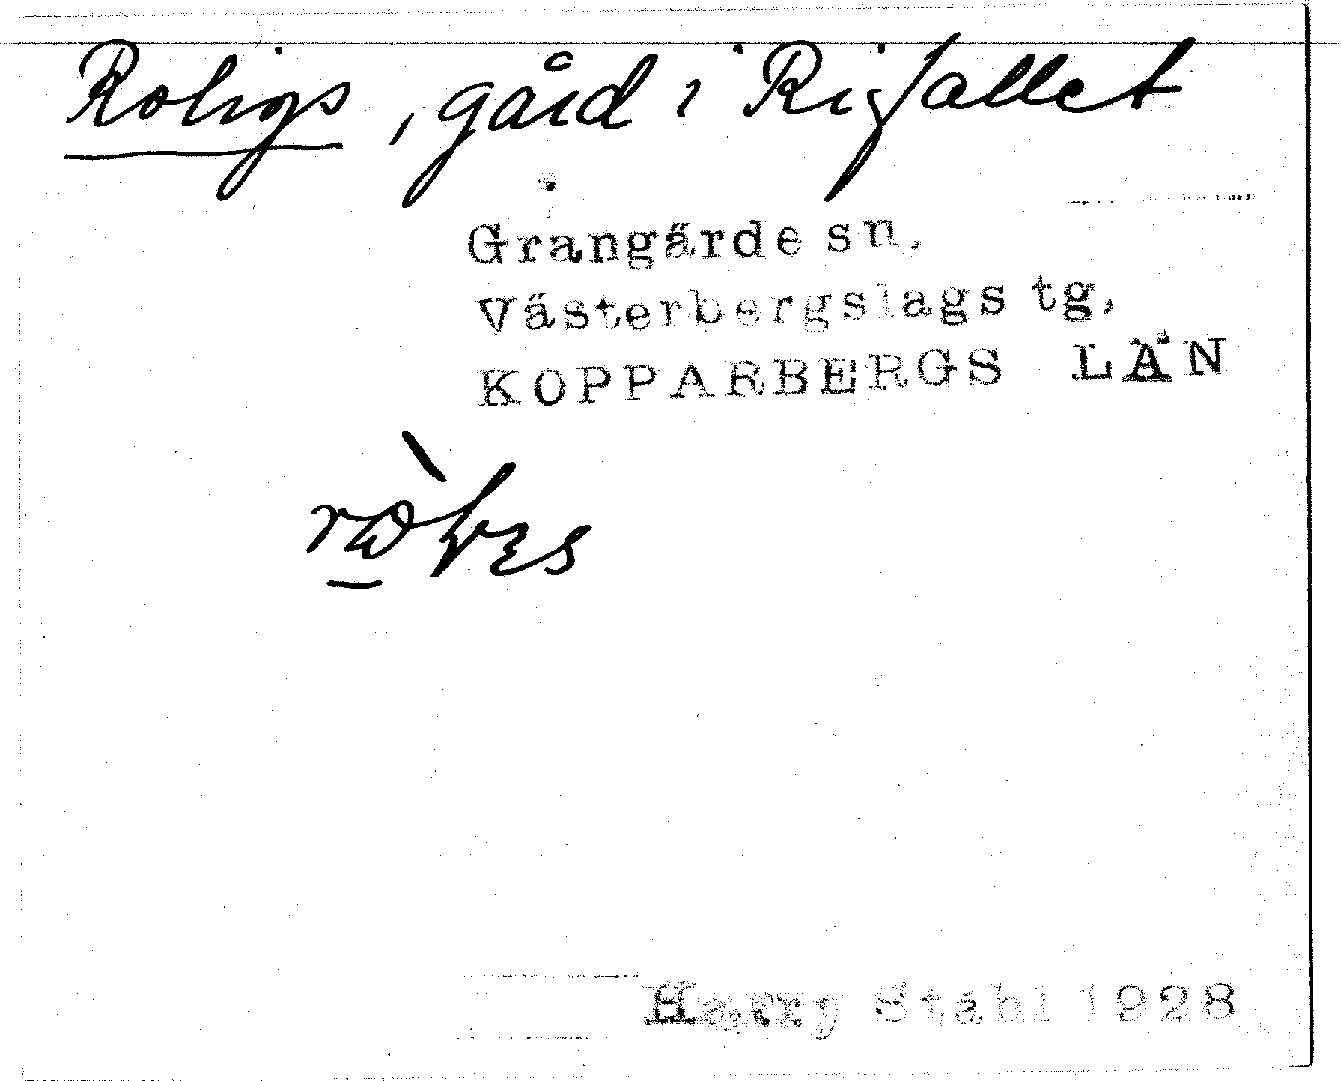 Roligs, gård i Risfallet
Grangärde sn,
Västerbergslags tg,
KOPPARBERGS LÄN
Harry Ståhl 1928